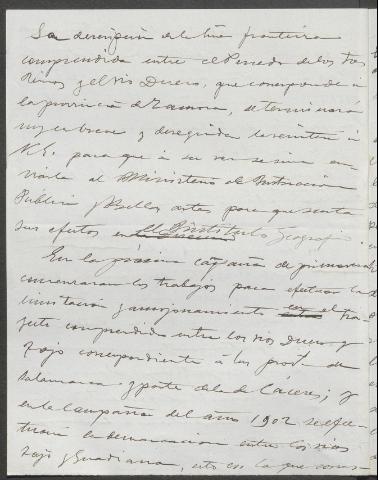 La descripción de la línea fronteriza
comprendida entre el Penedo de los tres
Reinos y el río Duero, que corresponde á
la provincia de Zamora, se terminará
muy en breve y deseguida la remitiré á
V.E. para que á su vez se sirva en-
viarla al Ministerio de Instrucción
Pública y Bellas artes, para que surta
sus efectos en el Instituto Geográfi
En la próxima campaña de primavera
comenzaran los trabajos para efectuar la
limitación y amojonamiento en el tra-
yecto comprendido entre los ríos Duero y
Tajo correspondiente á las prov. de
Salamanca y parte de la de Cáceres; y
en la Campaña del año 1902 se efec-
tuará la demarcacion entre los rios
Tajo y Guadiana, esto en lo que